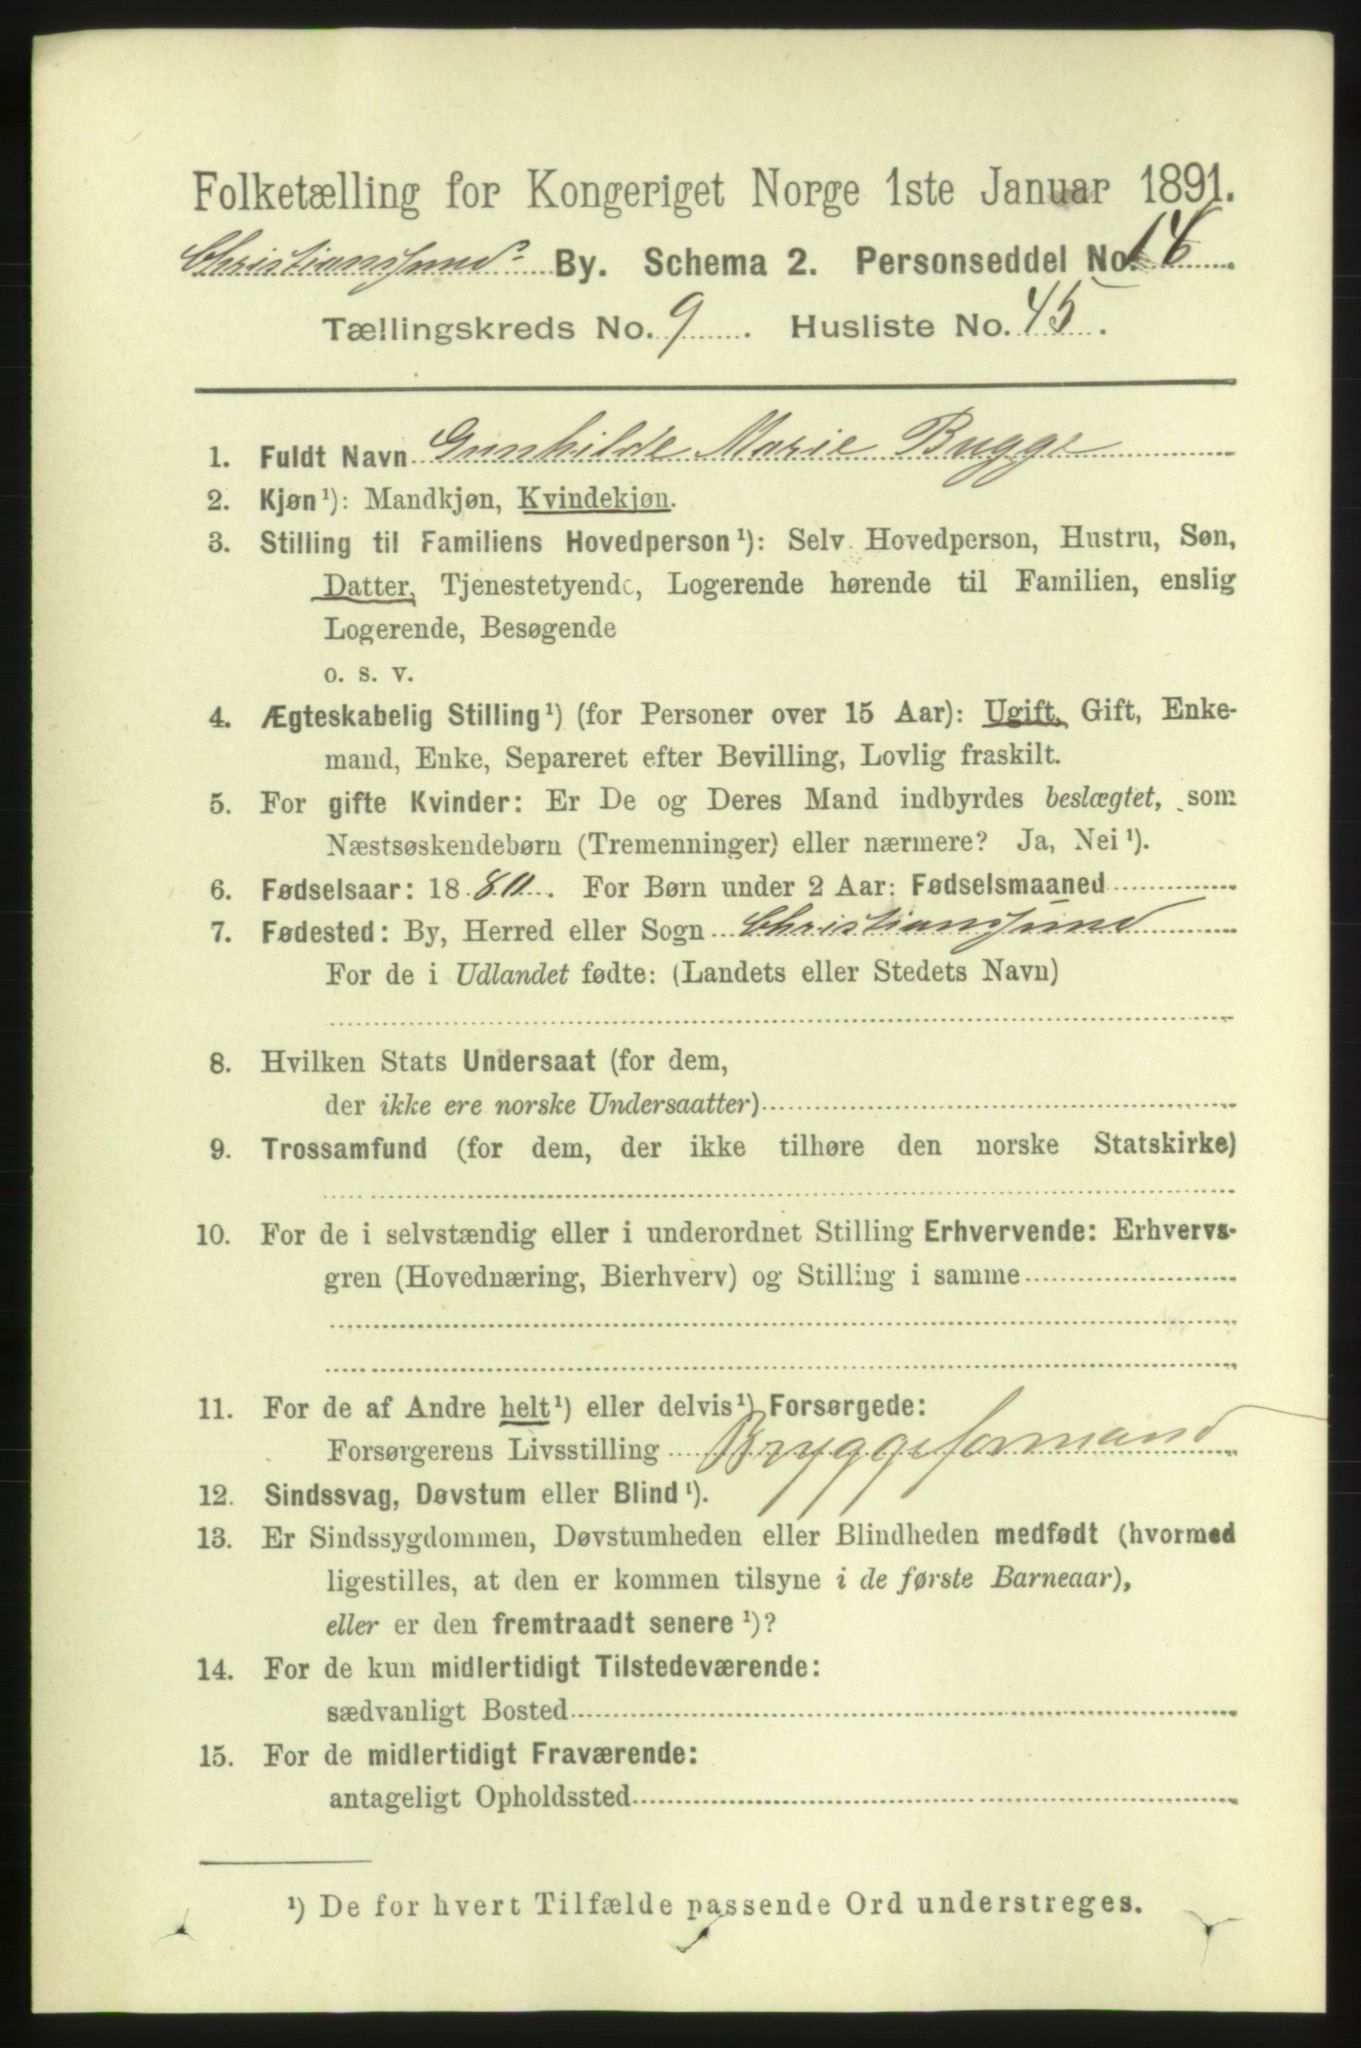 Folketælling for Kongeriget Norge 1ste Januar 1891.
Christianssund By. Schema 2. Personseddel No. 16
Tællingskreds No. 9. Husliste No. 45.
1. Fuldt Navn Gunhilde Marie Bugge
2. Kjøn¹): Mandkjøn, Kvindekjøn.
3. Stilling til Familiens Hovedperson¹): Selv Hovedperson, Hustru, Søn,
Datter, Tjenestetyende, Logerende hørende til Familien, enslig
Logerende, Besøgende
o. s. v.
4. Ægteskabelig Stilling¹) (for Personer over 15 Aar): Ugift, Gift, Enke-
mand, Enke, Separeret efter Bevilling, Lovlig fraskilt.
5. For gifte Kvinder: Er De og Deres Mand indbyrdes beslægtet, som
Næstsøskendebørn (Tremenninger) eller nærmere? Ja, Nei¹).
6. Fødselsaar: 1880. For Børn under 2 Aar: Fødselsmaaned
7. Fødested: By, Herred eller Sogn Christianssund
For de i Udlandet fødte: (Landets eller Stedets Navn)
8. Hvilken Stats Undersaat (for dem,
der ikke ere norske Undersaatter)
9. Trossamfund (for dem, der ikke tilhøre den norske Statskirke)
10. For de i selvstændig eller i underordnet Stilling Erhvervende: Erhvervs-
gren (Hovednæring, Bierhverv) og Stilling i samme
11. For de af Andre helt¹) eller delvis¹) Forsørgede:
Forsørgerens Livsstilling Bryggeformand
12. Sindssvag, Døvstum eller Blind¹).
13. Er Sindssygdommen, Døvstumheden eller Blindheden medfødt (hvormed
ligestilles, at den er kommen tilsyne i de første Barneaar),
eller er den fremtraadt senere¹)?
14. For de kun midlertidigt Tilstedeværende:
sædvanligt Bosted
15. For de midlertidigt Fraværende:
antageligt Opholdssted
¹) De for hvert Tilfælde passende Ord understreges.